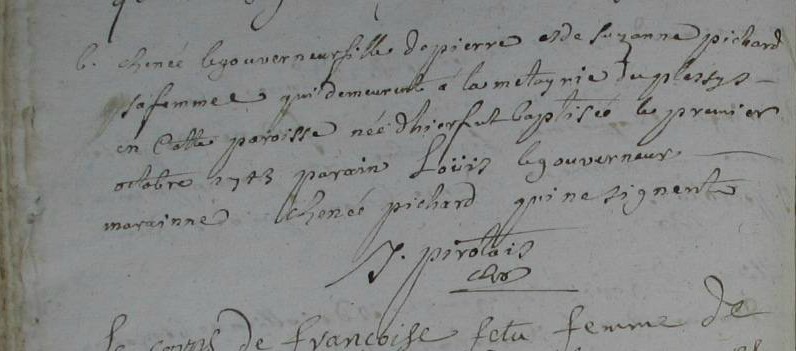 b. Renée legouverneur fille de pierre et de Suzanne pichard
sa femme qui demeurent á la metayrie du plessys
en Cette paroisse née d'hier fut baptisée le premier
octobre 1743 parain Loüis legouverneur
marainne Renée pichard qui ne signent
J. pirotais
Le corps de françoise fetu femme de